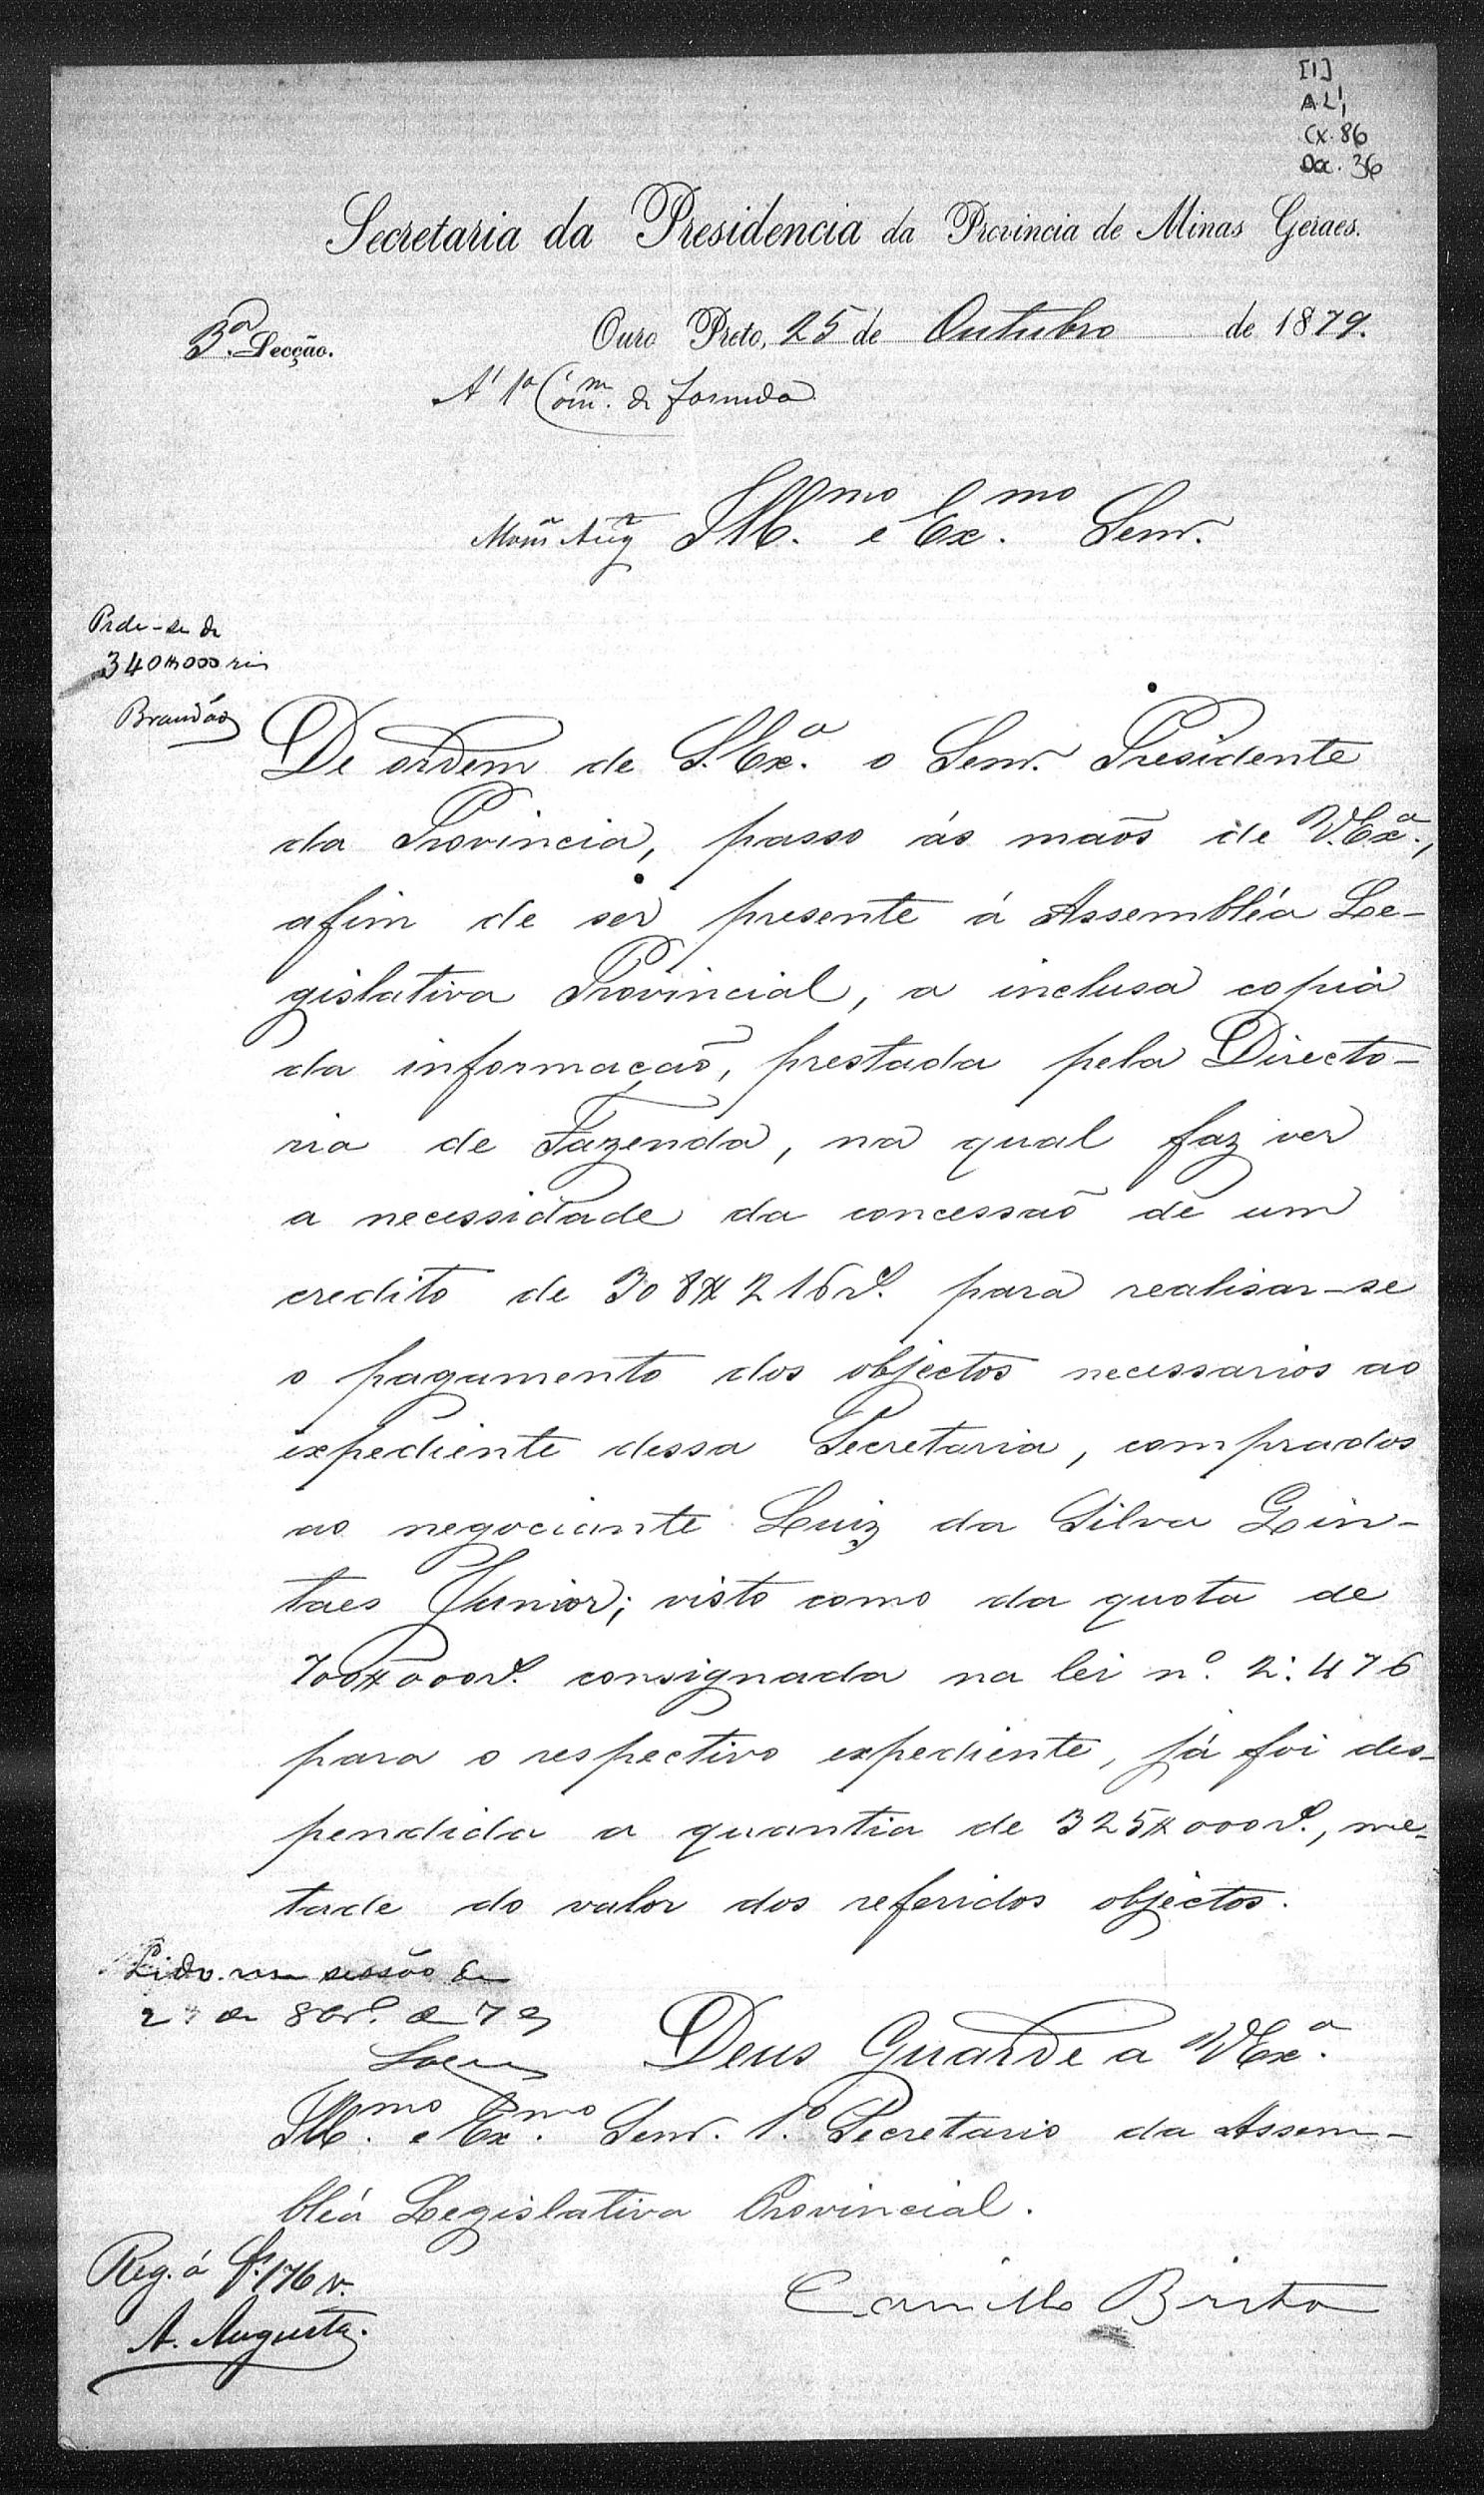 [1]
AL1
Cx. 86
Doc. 36
Secretaria da Presidencia da Provincia de Minas Geraes.
3ª Secção.
Ouro Preto, 25 de Outubro de 1879.
A' 1ª Com.m de fazenda
Ill.mo e Ex.mo Senr.
Pede-se de
340$000 reis
Brandão
De ordem de S. Ex.ª o Senr. Presidente
da Provincia, passo ás maõs de V. Ex.ª,
afim de ser presente á Assembléa Le-
gislativa Provincial, a inclusa copia
da informaçaõ, prestada pela Directo-
ria de Fazenda, na qual faz ver
a necessidade da concessaõ de um
credito de 308$216 rs. para realisar-se
o pagamento dos objectos necessarios ao
expediente dessa Secretaria, comprados
ao negociante Luiz da Silva Gin-
taes Junior; visto como da quota de
700$000 rs. consignada na lei nº. 2:476
para o respectivo expediente, já foi des-
pendida a quantia de 325$000 rs., me-
tade do valor dos referidos objectos.
Lido na sessão de
de 8br.º de 79
Deus Guarde a V Ex.ª
Ill.mo e Ex.mo Senr. 1.º Secretario da Assem-
bléa Legislativa Provincial.
Reg. á f. 176 v.
A. Augusto.
Camillo Brito